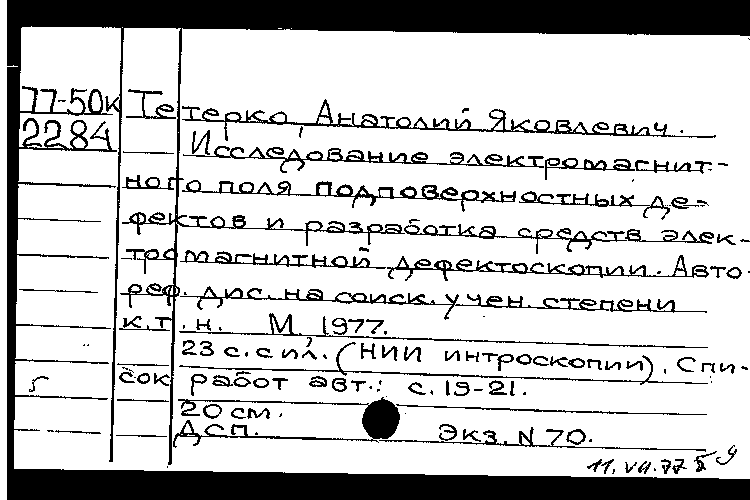 77-50к
2284
Тетерко, Анатолий Яковлевич.
Исследование электромагнит-
ного поля подповерхностных де-
фектов и разработка средств элек-
тромагнитной дефектоскопии. Авто-
реф. дис. на соиск. учен. степени
к.т.н. М., 1977.
23 с. с ил. (НИИ интроскопии). Спи-
сок работ авт.: с. 19-21.
20 см.
ДСП. Экз. N 70.
11.VII.77